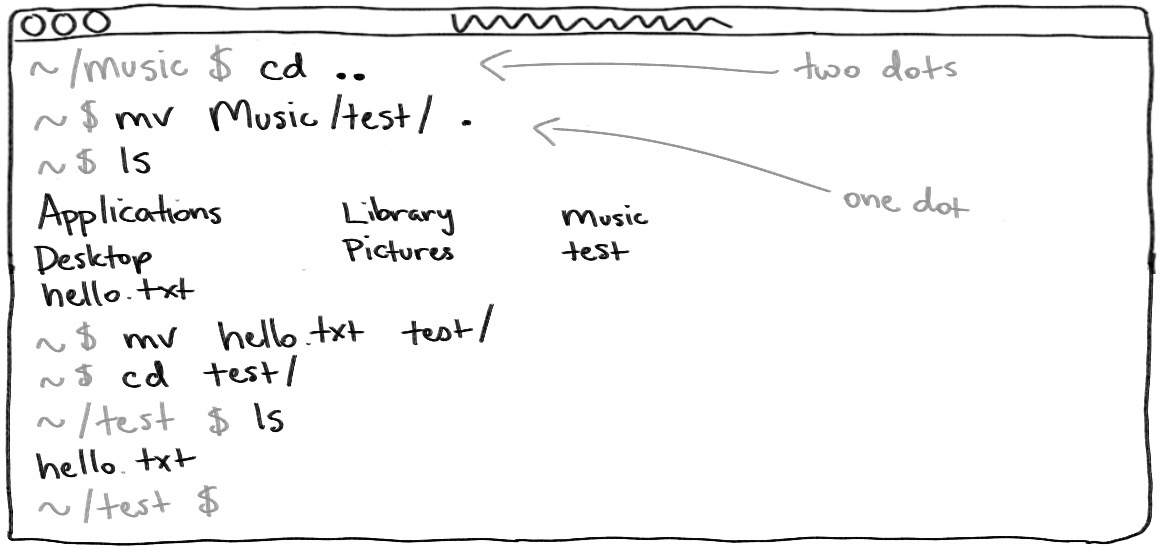 ~/music $ cd ..
two dots
~ $ mv Music/test/ .
one dot
~ $ ls
Applications Library music
Desktop Pictures test
hello.txt
~ $ mv hello.txt test/
~ $ cd test/
~/test $ ls
hello.txt
~/test $